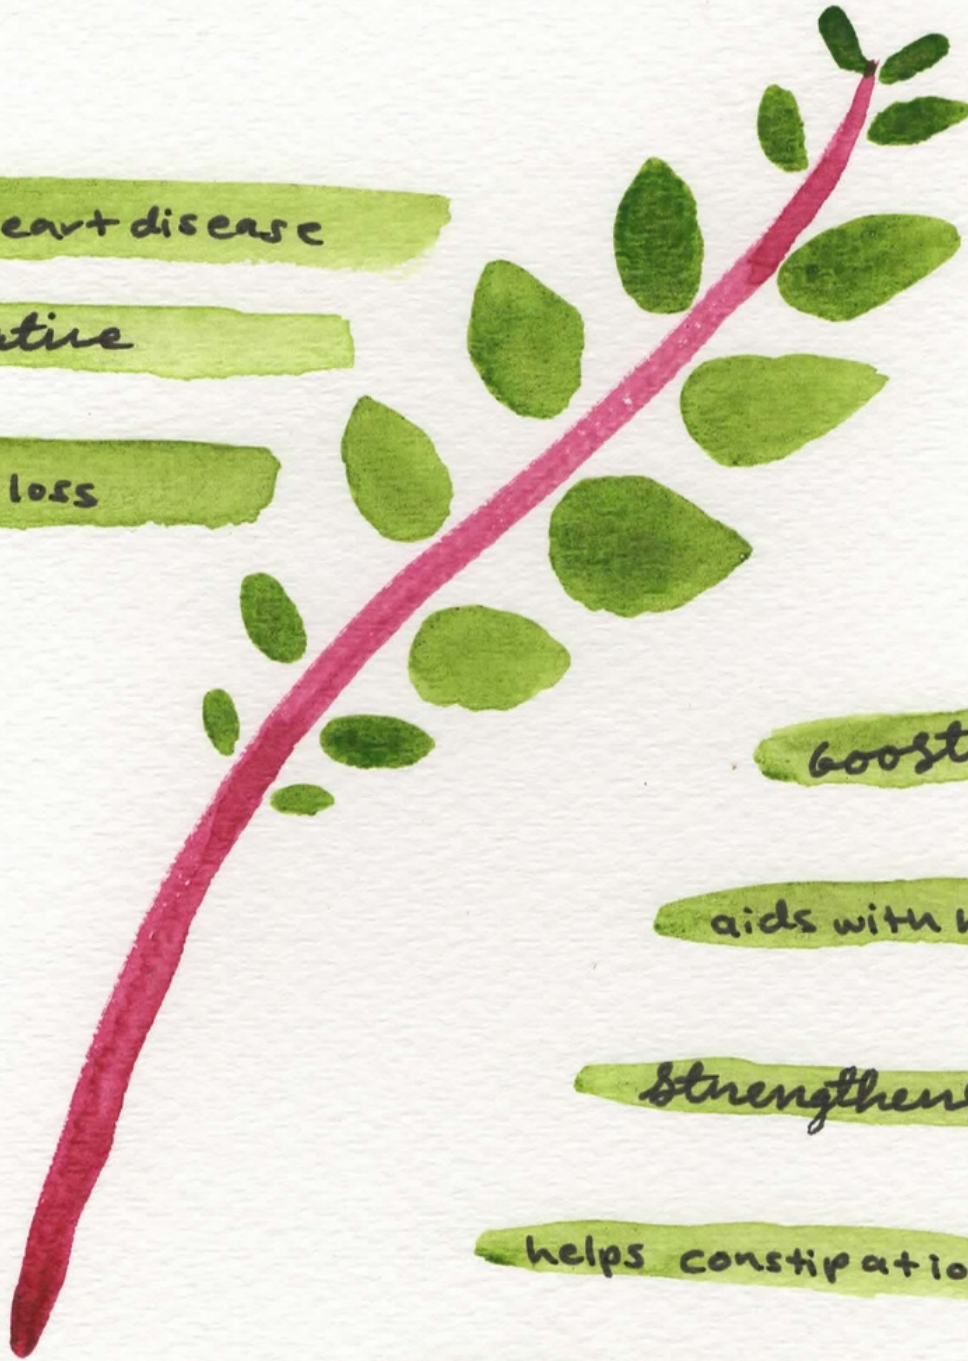 eart disease
ative
loss
boost
aids with
strengthens
helps constipatio